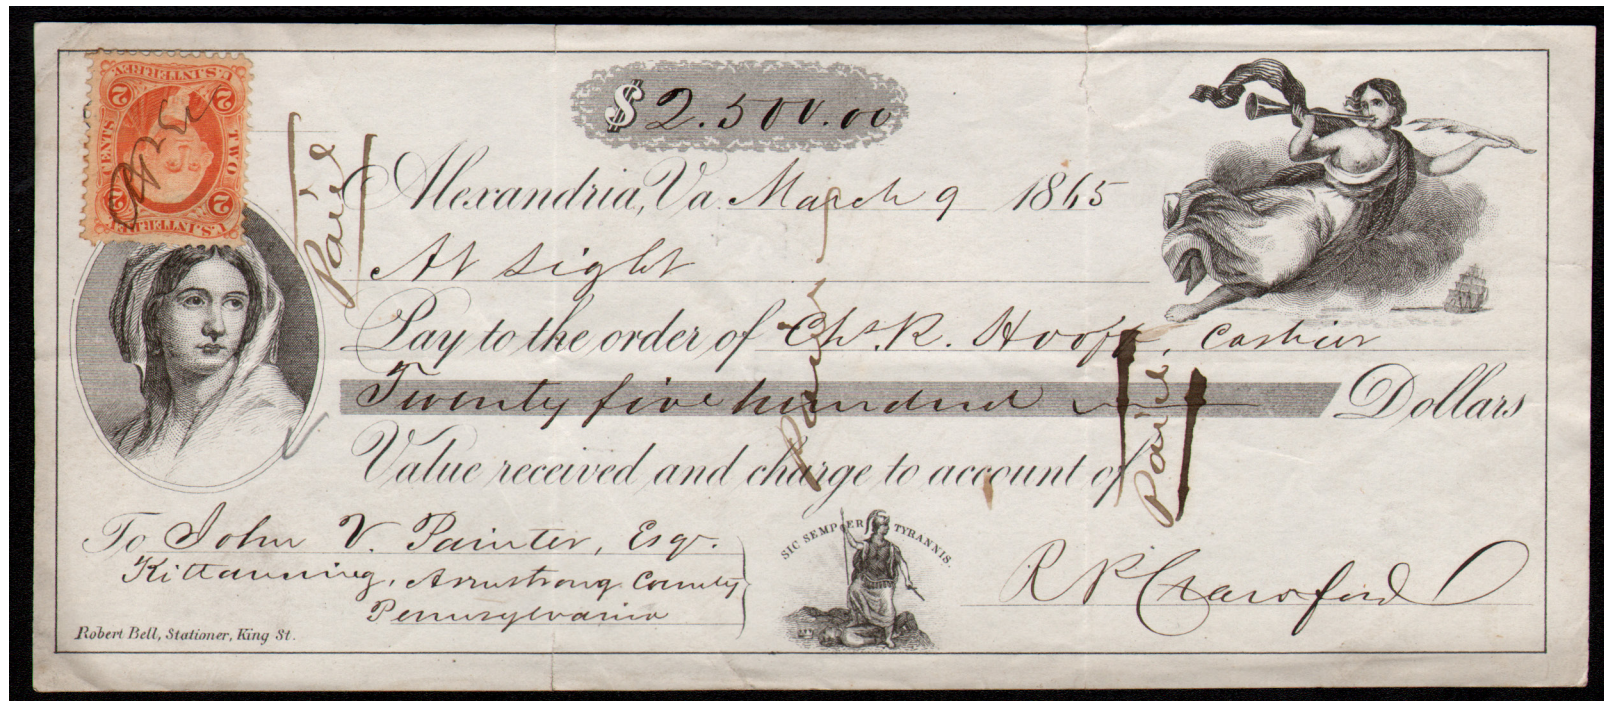 $2.500.00
U.S. INTER. REV.
2 2
TWO CENTS
2 2
U.S. INTER. REV.
Paid
Alexandria, Va. March 9 1865
At sight
Pay to the order of Chs. R. Hooff, Cashier
Twenty five hundred Dollars
Paid
Paid
Value received and charge to account of
To John V. Painter, Esqr.
Kittanning, Armstrong County
Pennsylvania
SIC SEMPER TYRANNIS.
R P Crawford
Robert Bell, Stationer, King St.